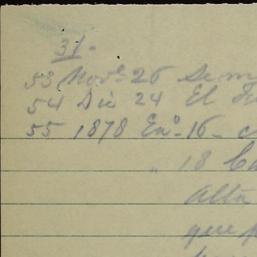 31.
53 Nov.e 26 Sem
54 Dic 24 El
55 1878 En.o 16
" 18
Alta
que